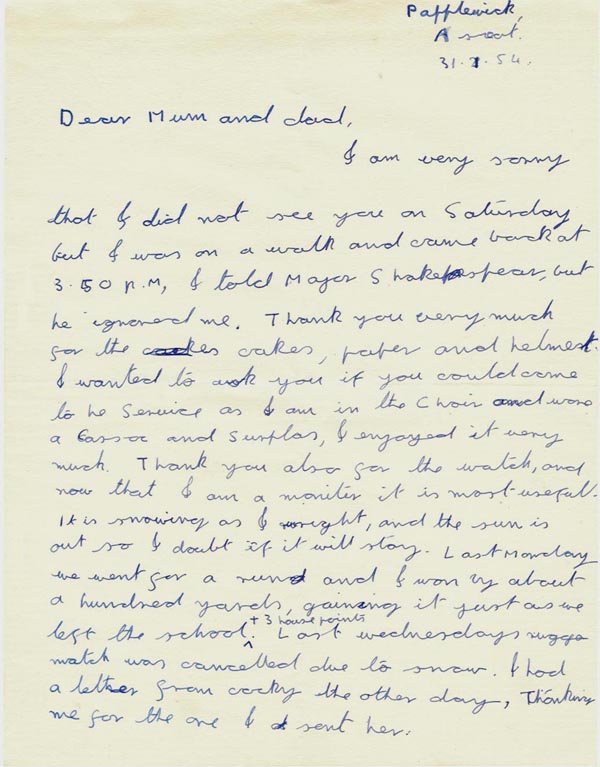 Papplewick,
Ascot.
31.1.54.
Dear Mum and dad,
I am very sorry
that I did not see you on Saturday
but I was on a walk and came back at
3.50 P.M, I told Major Shakespear, but
he ignored me. Thank you very much
for the cakes, paper and helmet.
I wanted to ask you if you could come
to he Service as I am in the Choir and wore
a Cassoc and Surplas, I enjoyed it very
much. Thank you also for the watch, and
now that I am a moniter it is most useful.
It is snowing as I wright, and the sun is
out so I doubt if it will stay. Last Monday
we went for a run and I won by about
a hundred yards, gaining it just as we
left the school. + 3 house points Last wednesdays rugga
match was cancelled due to snow. I had
a letter from cocky the other day, Thanking
me for the one I sent her.